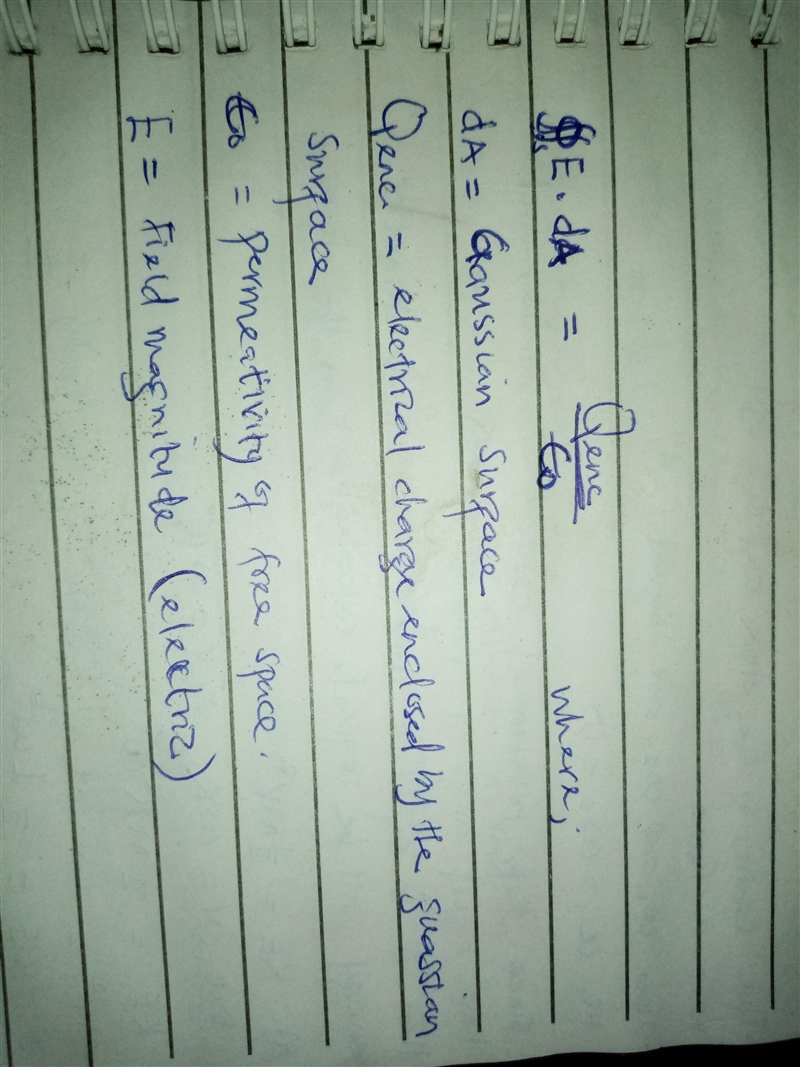 ∯E.dA = Qenc/ϵ0 where,
dA = Gaussian surface
Qenc = electrical charge enclosed by the guassian
surface
ϵ0 = permeativity of free space.
E = field magnitude (electric)